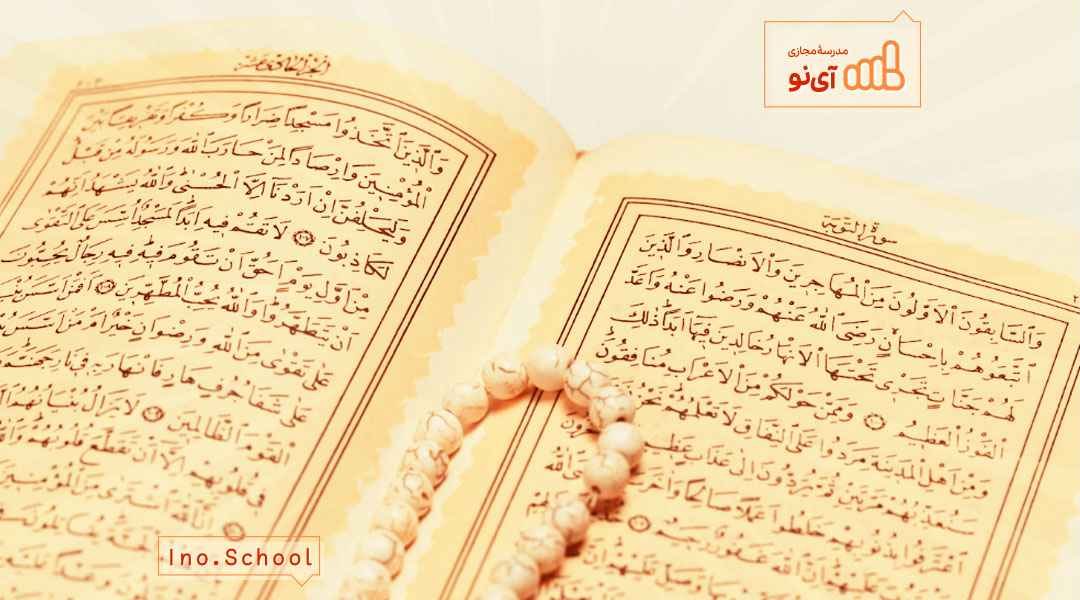 مدرسهٔ مجازی
آی‌نو
سورة التوبة
وَالسَّابِقُونَ الْاَوَّلُونَ مِنَ الْمُهَاجِرِينَ وَالْاَنْصَارِ وَالَّذِينَ
اتَّبَعُوهُمْ بِاِحْسَانٍ رَضِيَ اللّٰهُ عَنْهُمْ وَرَضُوا عَنْهُ وَاَعَدَّ
لَهُمْ جَنَّاتٍ تَجْرِي تَحْتَهَا الْاَنْهَارُ خَالِدِينَ فِيهَا اَبَدًا ذٰلِكَ
الْفَوْزُ الْعَظِيمُ وَمِمَّنْ حَوْلَكُمْ مِنَ الْاَعْرَابِ مُنَافِقُونَ
وَمِنْ اَهْلِ الْمَدِينَةِ مَرَدُوا عَلَى النِّفَاقِ لَا تَعْلَمُهُمْ نَحْنُ
سَنُعَذِّبُهُمْ مَرَّتَيْنِ ثُمَّ يُرَدُّونَ اِلٰى عَذَابٍ عَظِيمٍ
اعْتَرَفُوا بِذُنُوبِهِمْ خَلَطُوا عَمَلًا صَالِحًا وَاٰخَرَ اللّٰهُ
عَلَيْهِمْ اِنَّ اللّٰهَ غَفُورٌ رَحِيمٌ
٢٠٣
الجزء الحادي عشر
وَالَّذِينَ اتَّخَذُوا مَسْجِدًا ضِرَارًا وَكُفْرًا وَتَفْرِيقًا بَيْنَ
الْمُؤْمِنِينَ وَاِرْصَادًا لِمَنْ حَارَبَ اللّٰهَ وَرَسُولَهُ مِنْ قَبْلُ
وَلَيَحْلِفُنَّ اِنْ اَرَدْنَا اِلَّا الْحُسْنٰى وَاللّٰهُ يَشْهَدُ اِنَّهُمْ
لَكَاذِبُونَ لَا تَقُمْ فِيهِ اَبَدًا لَمَسْجِدٌ اُسِّسَ عَلَى التَّقْوٰى
مِنْ اَوَّلِ يَوْمٍ اَحَقُّ اَنْ تَقُومَ فِيهِ فِيهِ رِجَالٌ يُحِبُّونَ
اَنْ يَتَطَهَّرُوا وَاللّٰهُ يُحِبُّ الْمُطَّهِّرِينَ اَفَمَنْ اَسَّسَ
عَلٰى تَقْوٰى مِنَ اللّٰهِ وَرِضْوَانٍ خَيْرٌ اَمْ مَنْ اَسَّسَ
عَلٰى شَفَا جُرُفٍ هَارٍ فَانْهَارَ بِهِ فِي نَارِ جَهَنَّمَ
الْقَوْمَ الظَّالِمِينَ لَا يَزَالُ بُنْيَانُهُمُ
فِي قُلُوبِهِمْ اِلَّا اَنْ تَقَطَّعَ قُلُوبُهُمْ
اِنَّ اللّٰهَ اشْتَرٰى مِنَ الْمُؤْمِنِينَ
Ino.School